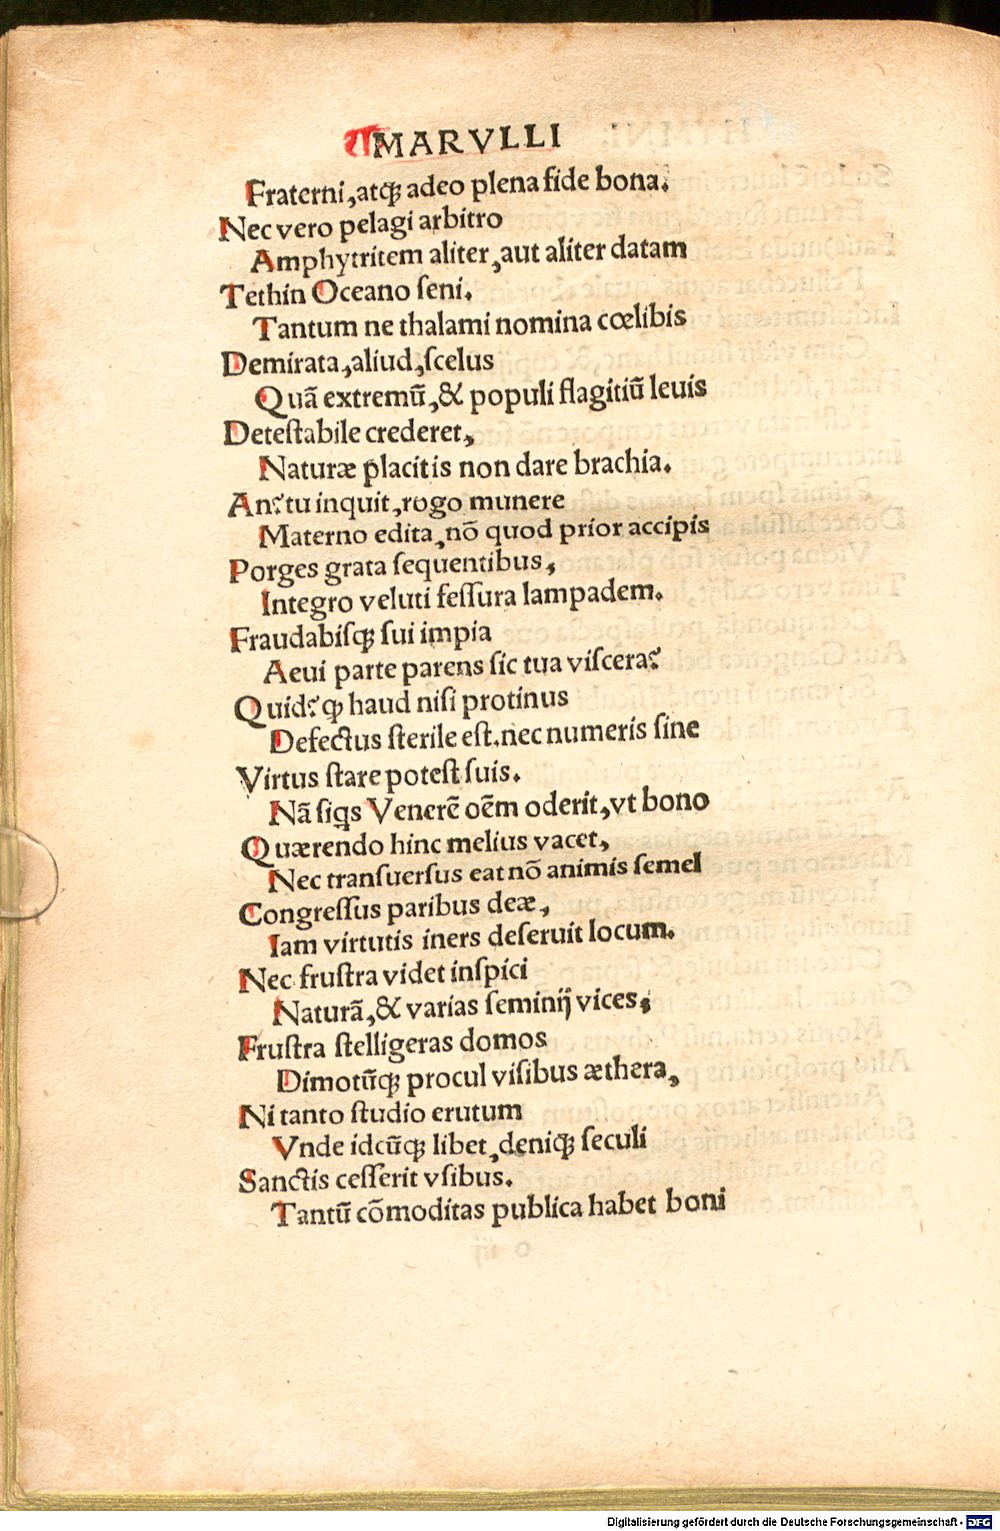 MARVLLI
Fraterni, atqꝫ adeo plena fide bona.
Nec vero pelagi arbitro
Amphytritem aliter, aut aliter datam
Tethin Oceano ſeni.
Tantum ne thalami nomina cœlibis
Demirata, aliud, ſcelus
Quã extremũ, & populi flagitiũ leuis
Deteſtabile crederet,
Naturæ placitis non dare brachia.
An? tu inquit, rogo munere
Materno edita, nõ quod prior accipis
Porges grata ſequentibus,
Integro veluti feſſura lampadem.
Fraudabiſqꝫ ſui impia
Aeui parte parens ſic tua viſcera?
Quid? ꝙ haud niſi protinus
Defectus ſterile eſt. nec numeris ſine
Virtus ſtare poteſt ſuis.
Nã ſiqs Venerẽ oẽm oderit, vt bono
Quærendo hinc melius vacet,
Nec tranſuerſus eat nõ animis ſemel
Congreſſus paribus deæ,
Iam virtutis iners deſeruit locum.
Nec fruſtra videt inſpici
Naturã, & varias ſeminij vices,
Fruſtra ſtelligeras domos
Dimotũqꝫ procul viſibus æthera,
Ni tanto ſtudio erutum
Vnde idcũqꝫ libet, deniqꝫ ſeculi
Sanctis ceſſerit vſibus.
Tantũ cõmoditas publica habet boni
Digitalisierung gefördert durch die Deutsche Forschungsgemeinschaft - DFG